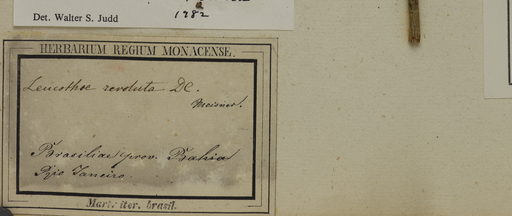 Det. Walter S. Judd
1982
HERBARIUM REGIUM MONACENSE.
Leucothoe revoluta DC.
Meisner.
Brasiliae prov. Bahia
Rio Janeiro.
Mart. iter. brasil.